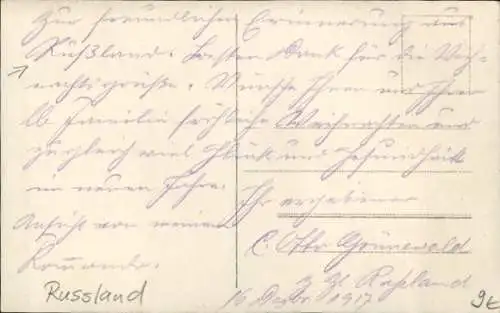 Zur freundlichen Erinnerung aus
Rußland. Besten Dank für die Weih-
nachtsgrüße. Wünsche Ihnen und Ihrer
lb Familie fröhliche Weihnachten und
zugleich viel Glück und Gesundheit
im neuen Jahre. Ihr ergebener
Ansicht von meinem
Kommando.
C. Otto Grünewald
z Zt Rußland
16 Dezbr 1917
Russland